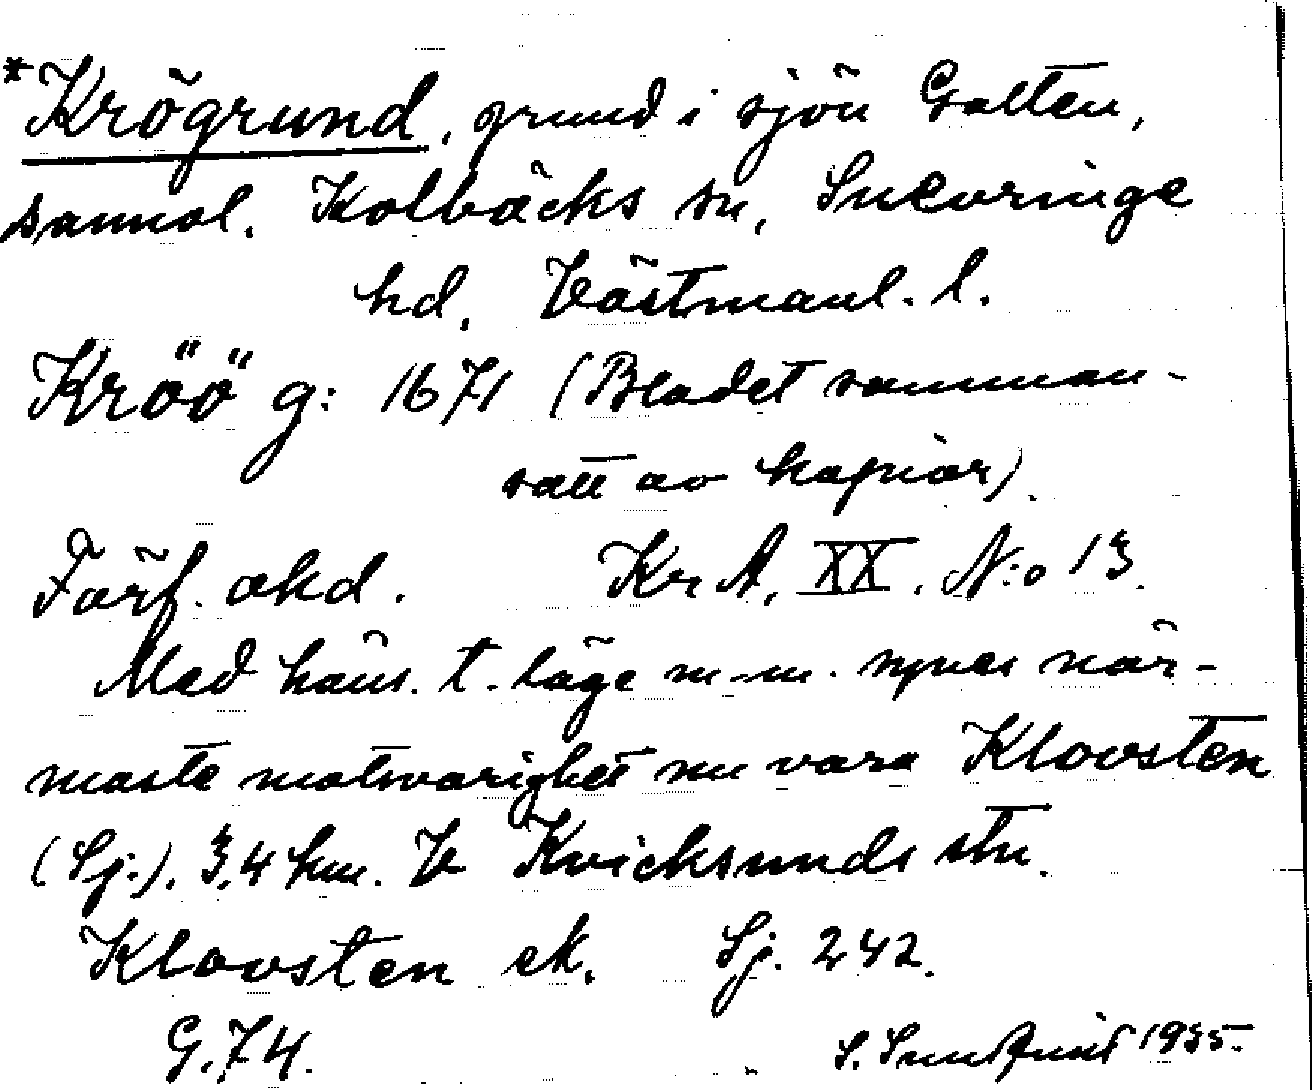 *Krögrund, grund i sjön Galten,
sannol. Kolbäcks sn, Snevringe
hd, Västmanl. l.
Kröö g: 1671 (Bladet samman-
satt av kopior).
Förf. okd. Kr A, XX, N:o 13.
Med häns. t. läge m.m. synes när-
maste motsvarighet nu vara Klovsten
(Sj.), 3,4 km. V Kvicksunds stn.
Klovsten ek. Sj. 242.
G.74. S. Sundquist 1935.